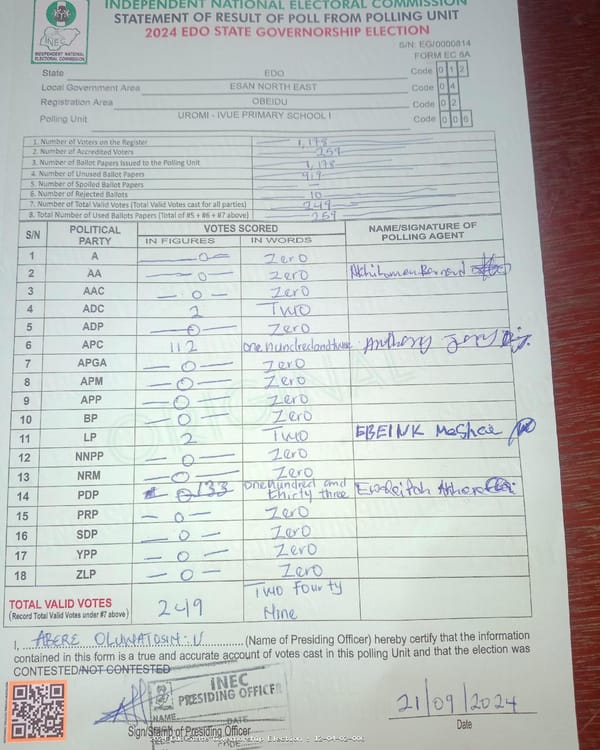 INDEPENDENT NATIONAL ELECTORAL COMMISSION
STATEMENT OF RESULT OF POLL FROM POLLING UNIT
2024 EDO STATE GOVERNORSHIP ELECTION
INEC
INDEPENDENT NATIONAL ELECTORAL COMMISSION
S/N: EG/0000814
FORM EC 8A
State EDO Code 0 1 2
Local Government Area ESAN NORTH EAST Code 0 4
Registration Area OBEIDU Code 0 2
Polling Unit UROMI - IVUE PRIMARY SCHOOL I Code 0 0 6
1. Number of Voters on the Register 1,178
2. Number of Accredited Voters 259
3. Number of Ballot Papers Issued to the Polling Unit 1,178
4. Number of Unused Ballot Papers 919
5. Number of Spoiled Ballot Papers —
6. Number of Rejected Ballots 10
7. Number of Total Valid Votes (Total Valid Votes cast for all parties) 249
8. Total Number of Used Ballots Papers (Total of #5 + #6 + #7 above) 259
S/N POLITICAL PARTY VOTES SCORED NAME/SIGNATURE OF POLLING AGENT
IN FIGURES IN WORDS
1 A — 0 — Zero
2 AA — 0 — Zero
3 AAC — 0 — Zero
4 ADC 2 Two
5 ADP — 0 — Zero
6 APC 112 one hundred and Anthony
7 APGA — 0 — Zero
8 APM — 0 — Zero
9 APP — 0 — Zero
10 BP — 0 — Zero
11 LP 2 Two EBEINK
12 NNPP — 0 — Zero
13 NRM — 0 — Zero
14 PDP 133 one hundred and thirty three
15 PRP — 0 — Zero
16 SDP — 0 — Zero
17 YPP — 0 — Zero
18 ZLP — 0 — Zero
TOTAL VALID VOTES 249 Two Fourty Nine
(Record Total Valid Votes under #7 above)
I, ABERE OLUWATOSIN .U (Name of Presiding Officer) hereby certify that the information
contained in this form is a true and accurate account of votes cast in this polling Unit and that the election was
CONTESTED/NOT CONTESTED
INEC
PRESIDING OFFICER
NAME
DATE
21/09/2024
Sign/Stamp of Presiding Officer
Date